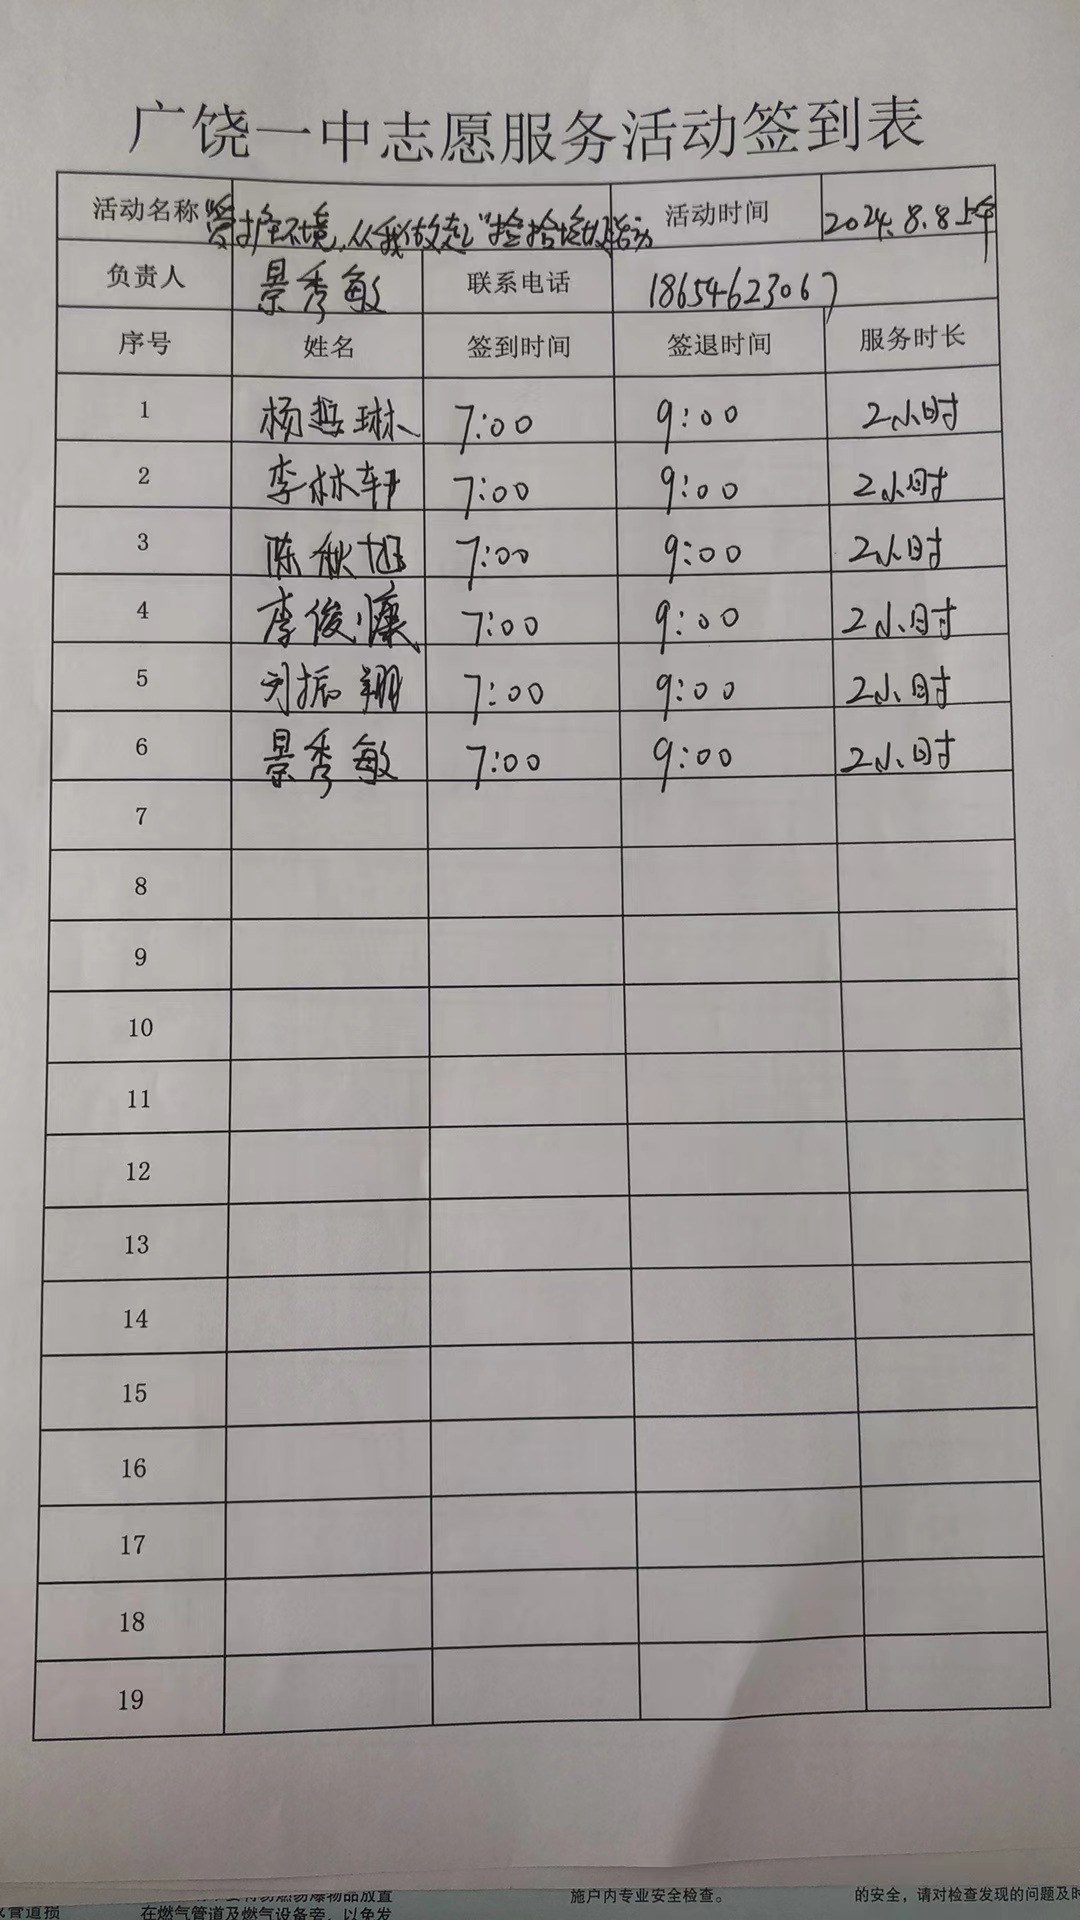 广饶一中志愿服务活动签到表
活动名称 "爱护环境,从我做起"捡拾垃圾活动 活动时间 2024.8.8上午
负责人 景秀敏 联系电话 18654623067
序号 姓名 签到时间 签退时间 服务时长
1 杨哲琳 7:00 9:00 2小时
2 李林轩 7:00 9:00 2小时
3 陈秋旭 7:00 9:00 2小时
4 李俊 7:00 9:00 2小时
5 刘振翔 7:00 9:00 2小时
6 景秀敏 7:00 9:00 2小时
7
8
9
10
11
12
13
14
15
16
17
18
19
易燃易爆物品放置
施户内专业安全检查。
的安全,请对检查发现的问题及时
管道损
在燃气管道及燃气设备旁,以免发